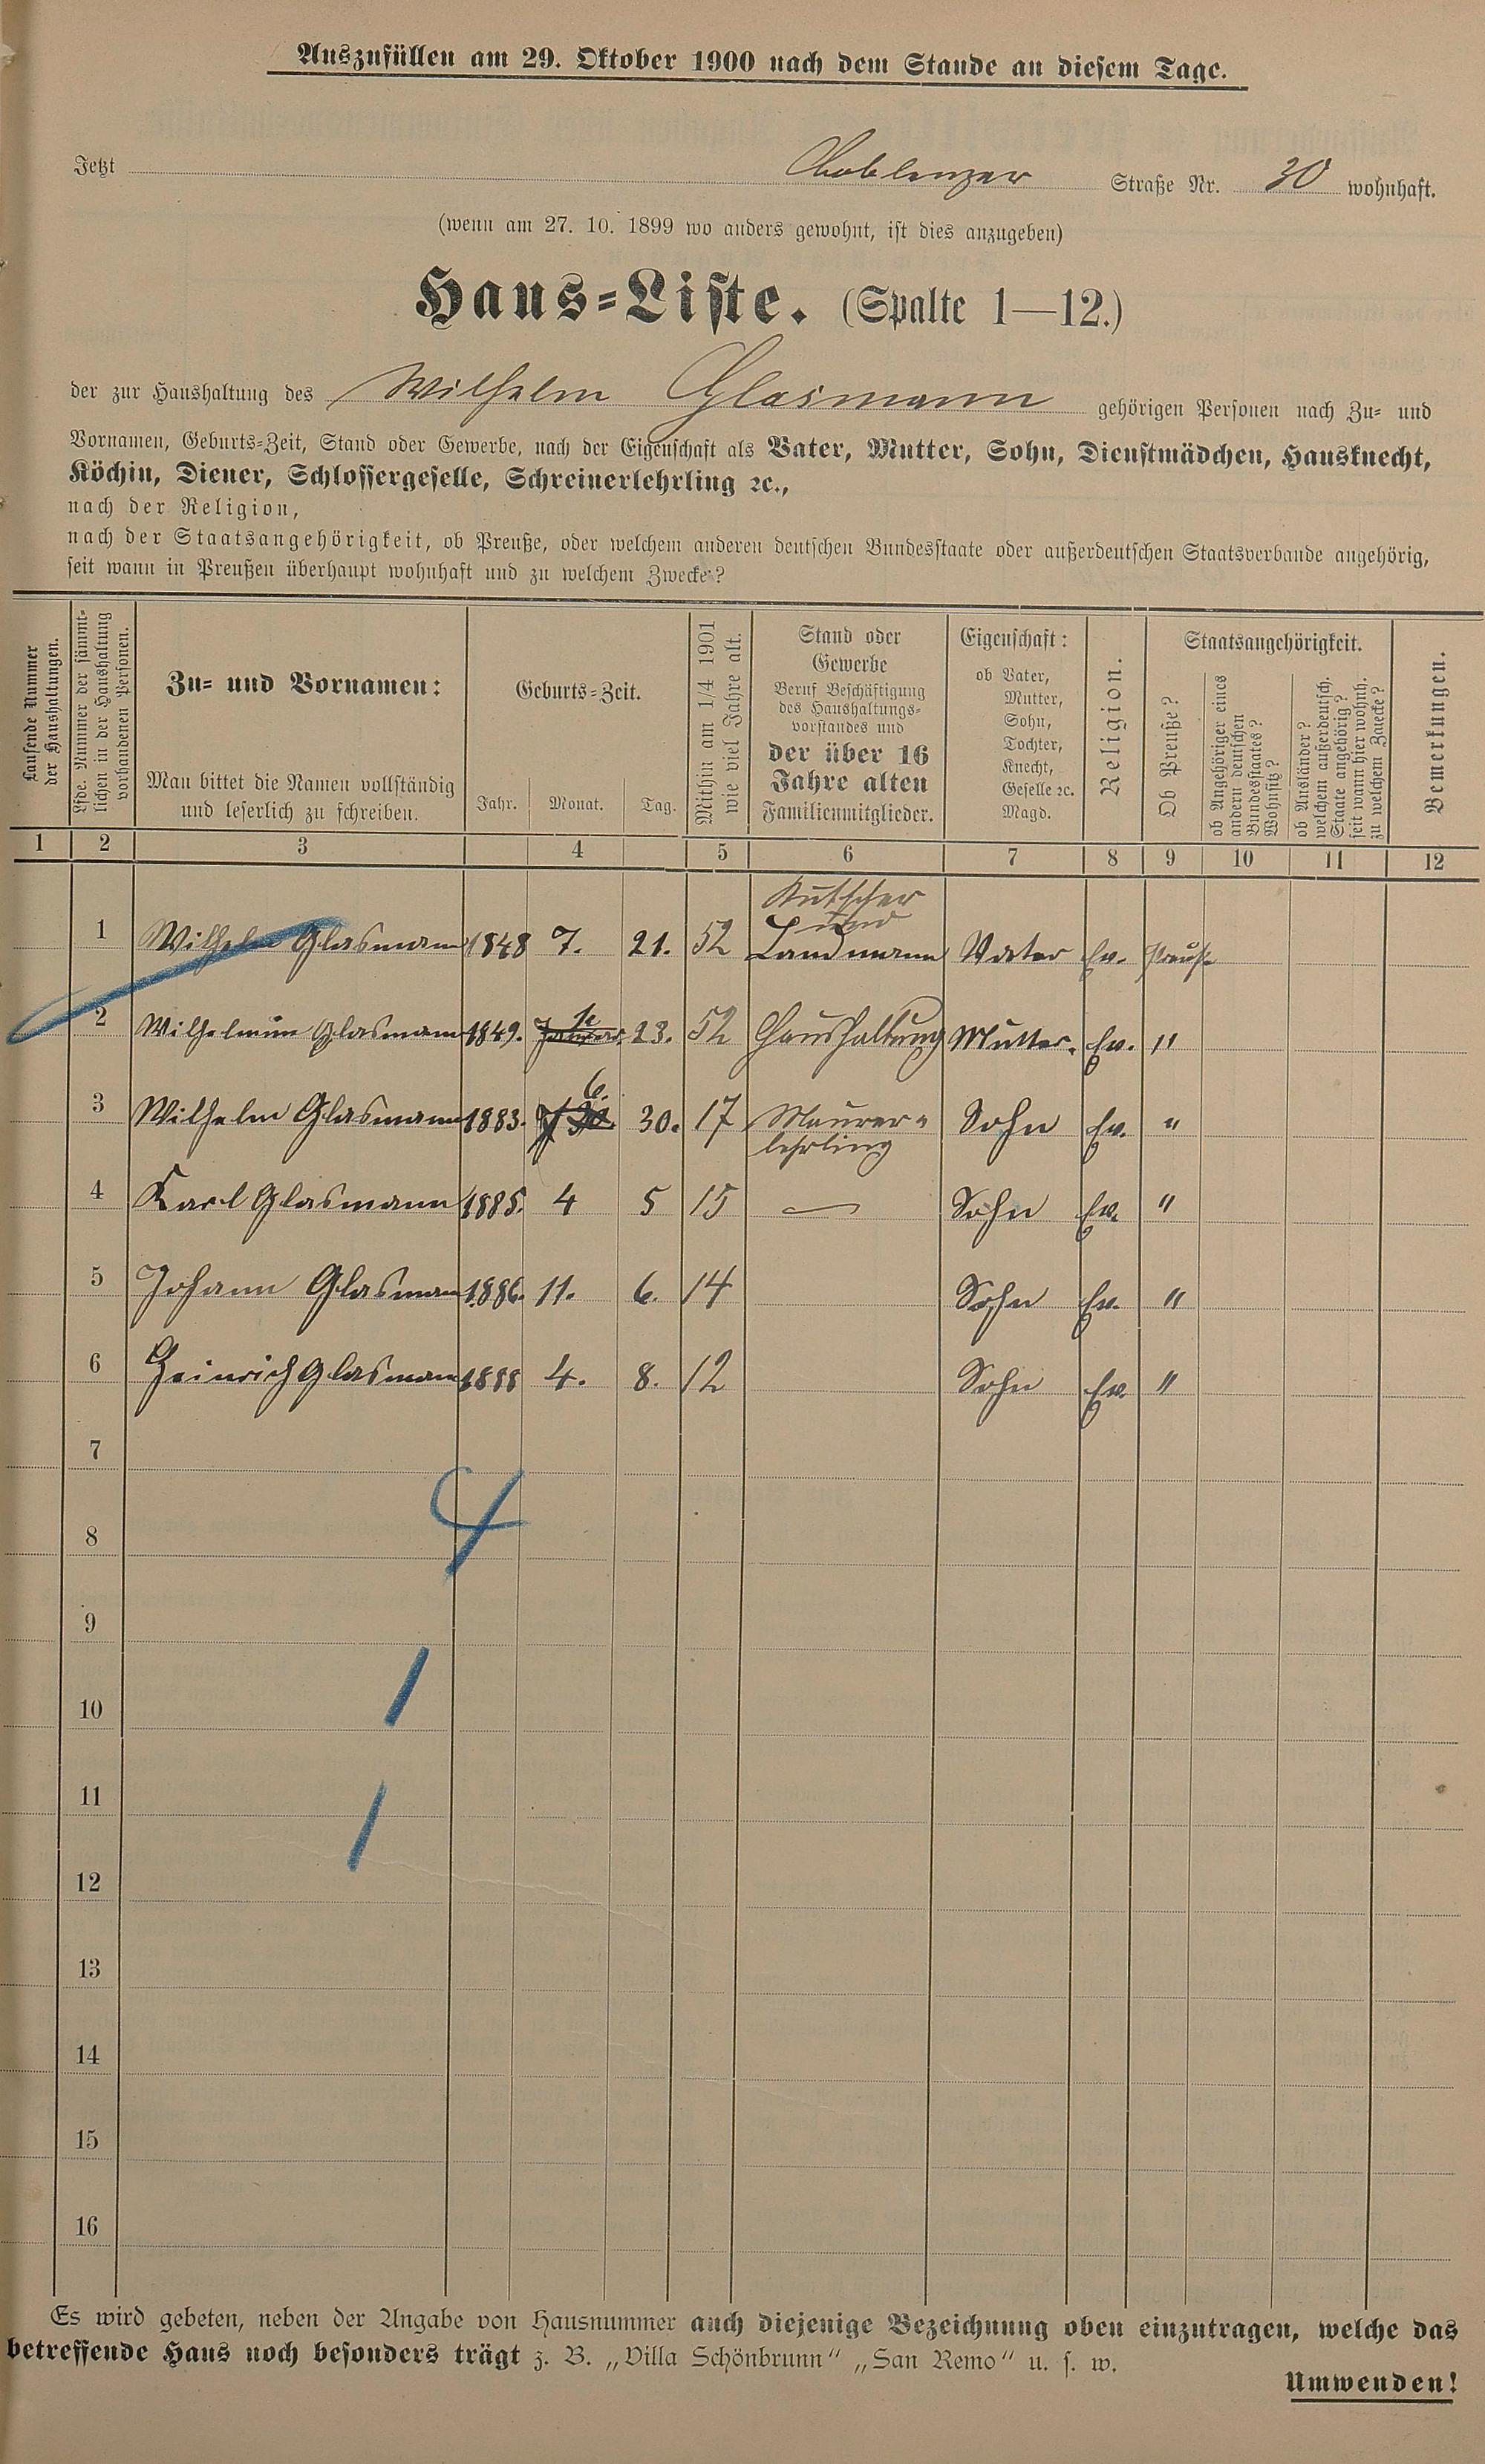 Auszufüllen am 29. Oktober 1900 nach dem Stande an diesem Tage.
Jetzt Coblenzer Straße Nr. 30 wohnhaft.
(wenn am 27. 10. 1899 wo anders gewohnt, ist dies anzugeben)
Haus-Liste. (Spalte 1—12.)
der zur Haushaltung des Wilhelm Glasmann gehörigen Personen nach Zu- und
Vornamen, Geburts-Zeit, Stand oder Gewerbe, nach der Eigenschaft als Vater, Mutter, Sohn, Dienstmädchen, Hausknecht,
Köchin, Diener, Schlossergeselle, Schreinerlehrling ꝛc.,
nach der Religion,
nach der Staatsangehörigkeit, ob Preuße, oder welchem anderen deutschen Bundesstaate oder außerdeutschen Staatsverbande angehörig,
seit wann in Preußen überhaupt wohnhaft und zu welchem Zwecke?
Laufende Nummer
der Haushaltungen.
Lfde. Nummer der sämmt-
lichen in der Haushaltung
vorhandenen Personen.
Zu- und Vornamen:
Man bittet die Namen vollständig
und leserlich zu schreiben.
Geburts-Zeit.
Jahr. Monat. Tag.
Mithin am 1/4 1901
wie viel Jahre alt.
Stand oder
Gewerbe
Beruf Beschäftigung
des Haushaltungs-
vorstandes und
der über 16
Jahre alten
Familienmitglieder.
Eigenschaft:
ob Vater,
Mutter,
Sohn,
Tochter,
Knecht,
Geselle ꝛc.
Magd.
Religion.
Staatsangehörigkeit.
Ob Preuße?
ob Angehöriger eines
andern deutschen
Bundesstaates?
Wohnsitz?
ob Ausländer?
welchem außerdeutsch.
Staate angehörig?
seit wann hier wohnh.
zu welchem Zwecke?
Bemerkungen.
1 2 3 4 5 6 7 8 9 10 11 12
Kutscher
und
1 Wilhelm Glasmann 1848 7. 21. 52 Landmann Vater Ev. Preuße
2 Wilhelmine Glasmann 1849. 1. 23. 52 Haushaltung Mutter. Ev. "
3 Wilhelm Glasmann 1883. 6. 30. 17 Maurer- Sohn Ev. "
lehrling
4 Karl Glasmann 1885. 4 5 15 — Sohn Ev. "
5 Johann Glasmann 1886. 11. 6. 14 Sohn Ev. "
6 Heinrich Glasmann 1888 4. 8. 12 Sohn Ev. "
7
4
8
9
1
10
11
1
12
13
14
15
16
Es wird gebeten, neben der Angabe von Hausnummer auch diejenige Bezeichnung oben einzutragen, welche das
betreffende Haus noch besonders trägt z. B. „Villa Schönbrunn“ „San Remo“ u. s. w.
Umwenden!